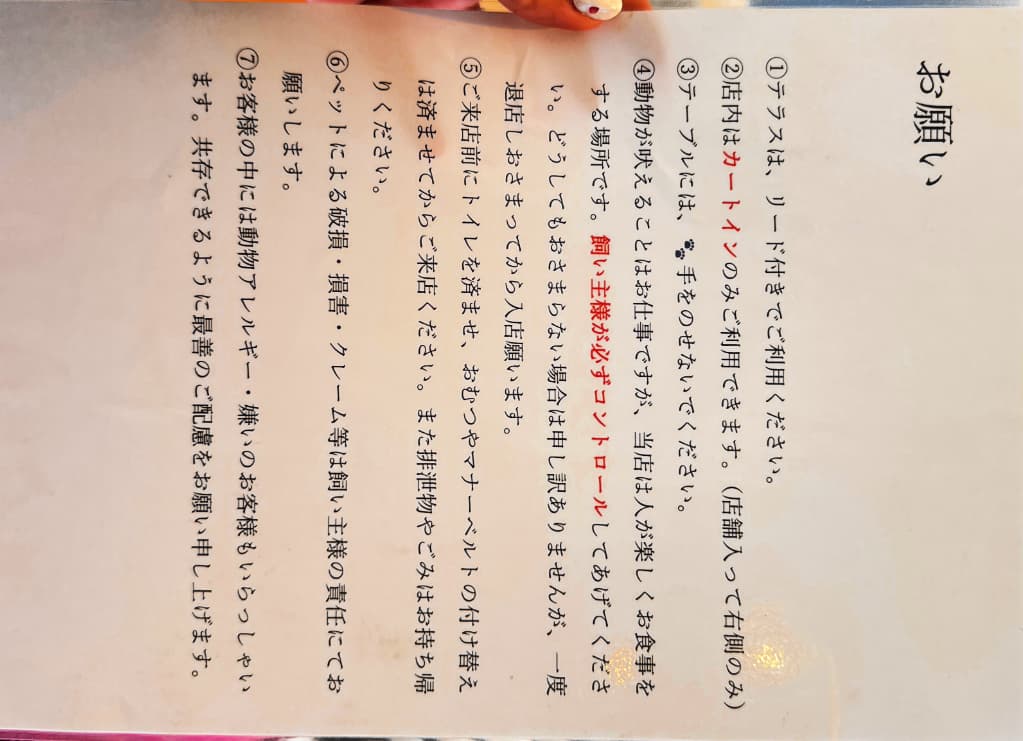 お願い
①テラスは、リード付きでご利用ください。
②店内はカートインのみご利用できます。（店舗入って右側のみ）
③テーブルには、🐾手をのせないでください。
④動物が吠えることはお仕事ですが、当店は人が楽しくお食事を
する場所です。飼い主様が必ずコントロールしてあげてくださ
い。どうしてもおさまらない場合は申し訳ありませんが、一度
退店しおさまってから入店願います。
⑤ご来店前にトイレを済ませ、おむつやマナーベルトの付け替え
は済ませてからご来店ください。また排泄物やごみはお持ち帰
りください。
⑥ペットによる破損・損害・クレーム等は飼い主様の責任にてお
願いします。
⑦お客様の中には動物アレルギー・嫌いのお客様もいらっしゃい
ます。共存できるように最善のご配慮をお願い申し上げます。